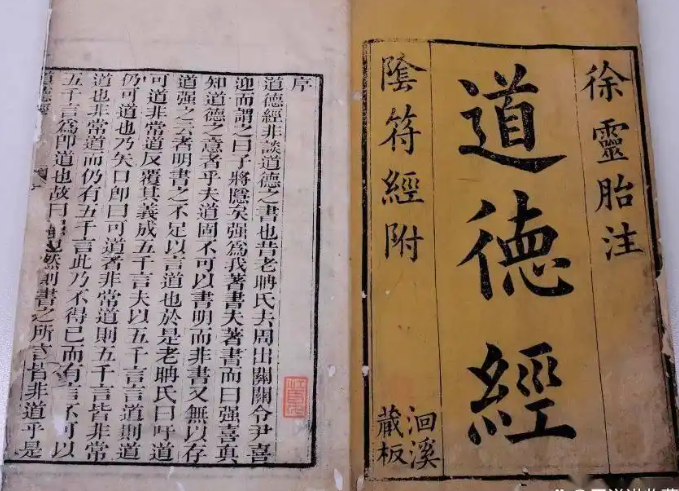 徐靈胎注
道德經
隂符經附
洄溪
藏板
序
道德經非談道德之書也昔老聃氏去周出關關令尹喜
迎而謂之曰子將隱矣强爲我著書夫著書而曰强喜真
知道德之意者乎夫道固不可以書明而非書又無以存
道强之云者明書之不足以言道也於是老聃氏曰吁道
可道非常道反覆其義成五千言夫以五千言言道則道
仍可道也乃矢口即曰可道者非常道則五千言皆非常
道也非常道而仍有五千言此乃不得已而有言不可以
五千言爲即道也故曰然則書之所言皆非道乎是
道德經